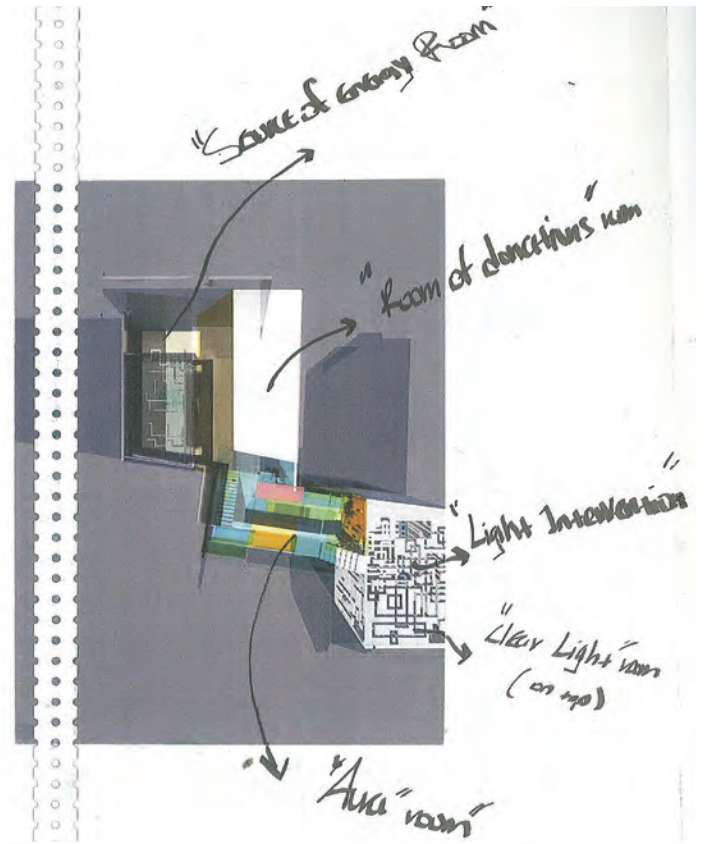 "Source of energy Room"
"Room of donations" room
"Light Intervention"
"Clear Light" room
(on top)
"Aura" room"